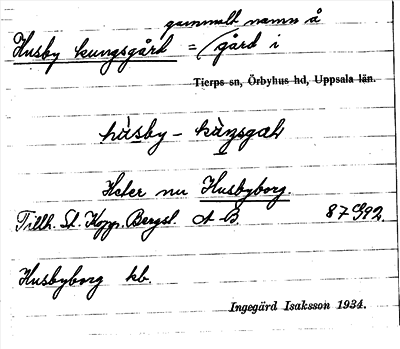 gammalt namn å
Husby kungsgård = gård i
Tierps sn, Örbyhus hd, Uppsala län.
Heter nu Husbyborg.
Tillh. St. Kopp. Bergsl. A-B 87992.
Husbyborg kb.
Ingegärd Isaksson 1934.